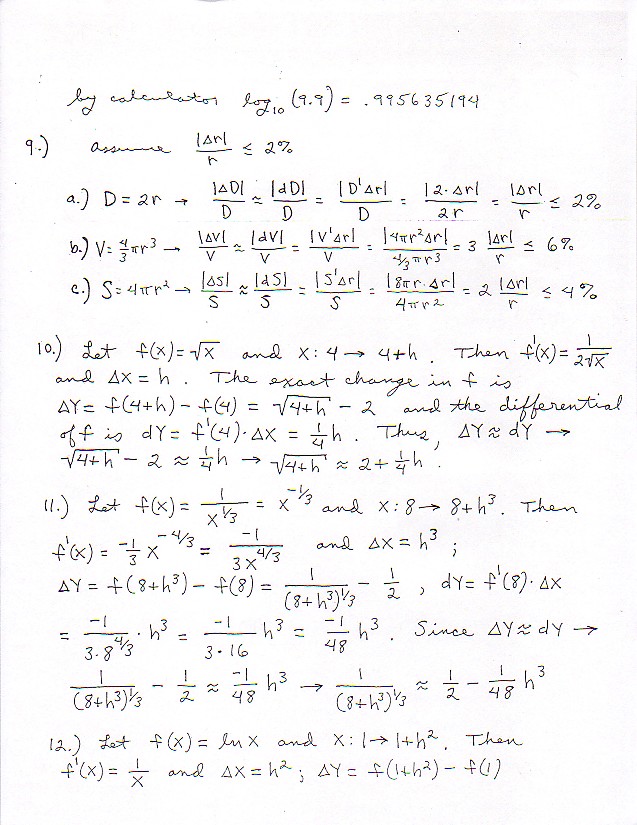 by calculator log₁₀ (9.9) = .995635194
9.) assume |Δr|/r ≤ 2%
a.) D = 2r → |ΔD|/D ≈ |dD|/D = |D'Δr|/D = |2·Δr|/2r = |Δr|/r ≤ 2%
b.) V = 4/3 πr³ → |ΔV|/V ≈ |dV|/V = |V'Δr|/V = |4πr²Δr|/(4/3 πr³) = 3 |Δr|/r ≤ 6%
c.) S = 4πr² → |ΔS|/S ≈ |dS|/S = |S'Δr|/S = |8πr·Δr|/4πr² = 2 |Δr|/r ≤ 4%
10.) Let f(x) = √x and x: 4 → 4+h. Then f'(x) = 1/(2√x)
and Δx = h. The exact change in f is
ΔY = f(4+h) - f(4) = √(4+h) - 2 and the differential
of f is dY = f'(4)·Δx = 1/4 h. Thus, ΔY ≈ dY →
√(4+h) - 2 ≈ 1/4 h → √(4+h) ≈ 2 + 1/4 h.
11.) Let f(x) = 1/x^(1/3) = x^(-1/3) and x: 8 → 8+h³. Then
f'(x) = -1/3 x^(-4/3) = -1/(3x^(4/3)) and Δx = h³ ;
ΔY = f(8+h³) - f(8) = 1/(8+h³)^(1/3) - 1/2 , dY = f'(8)·Δx
= -1/(3·8^(4/3)) · h³ = -1/(3·16) h³ = -1/48 h³. Since ΔY ≈ dY →
1/(8+h³)^(1/3) - 1/2 ≈ -1/48 h³ → 1/(8+h³)^(1/3) ≈ 1/2 - 1/48 h³
12.) Let f(x) = ln x and x: 1 → 1+h². Then
f'(x) = 1/x and Δx = h² ; ΔY = f(1+h²) - f(1)